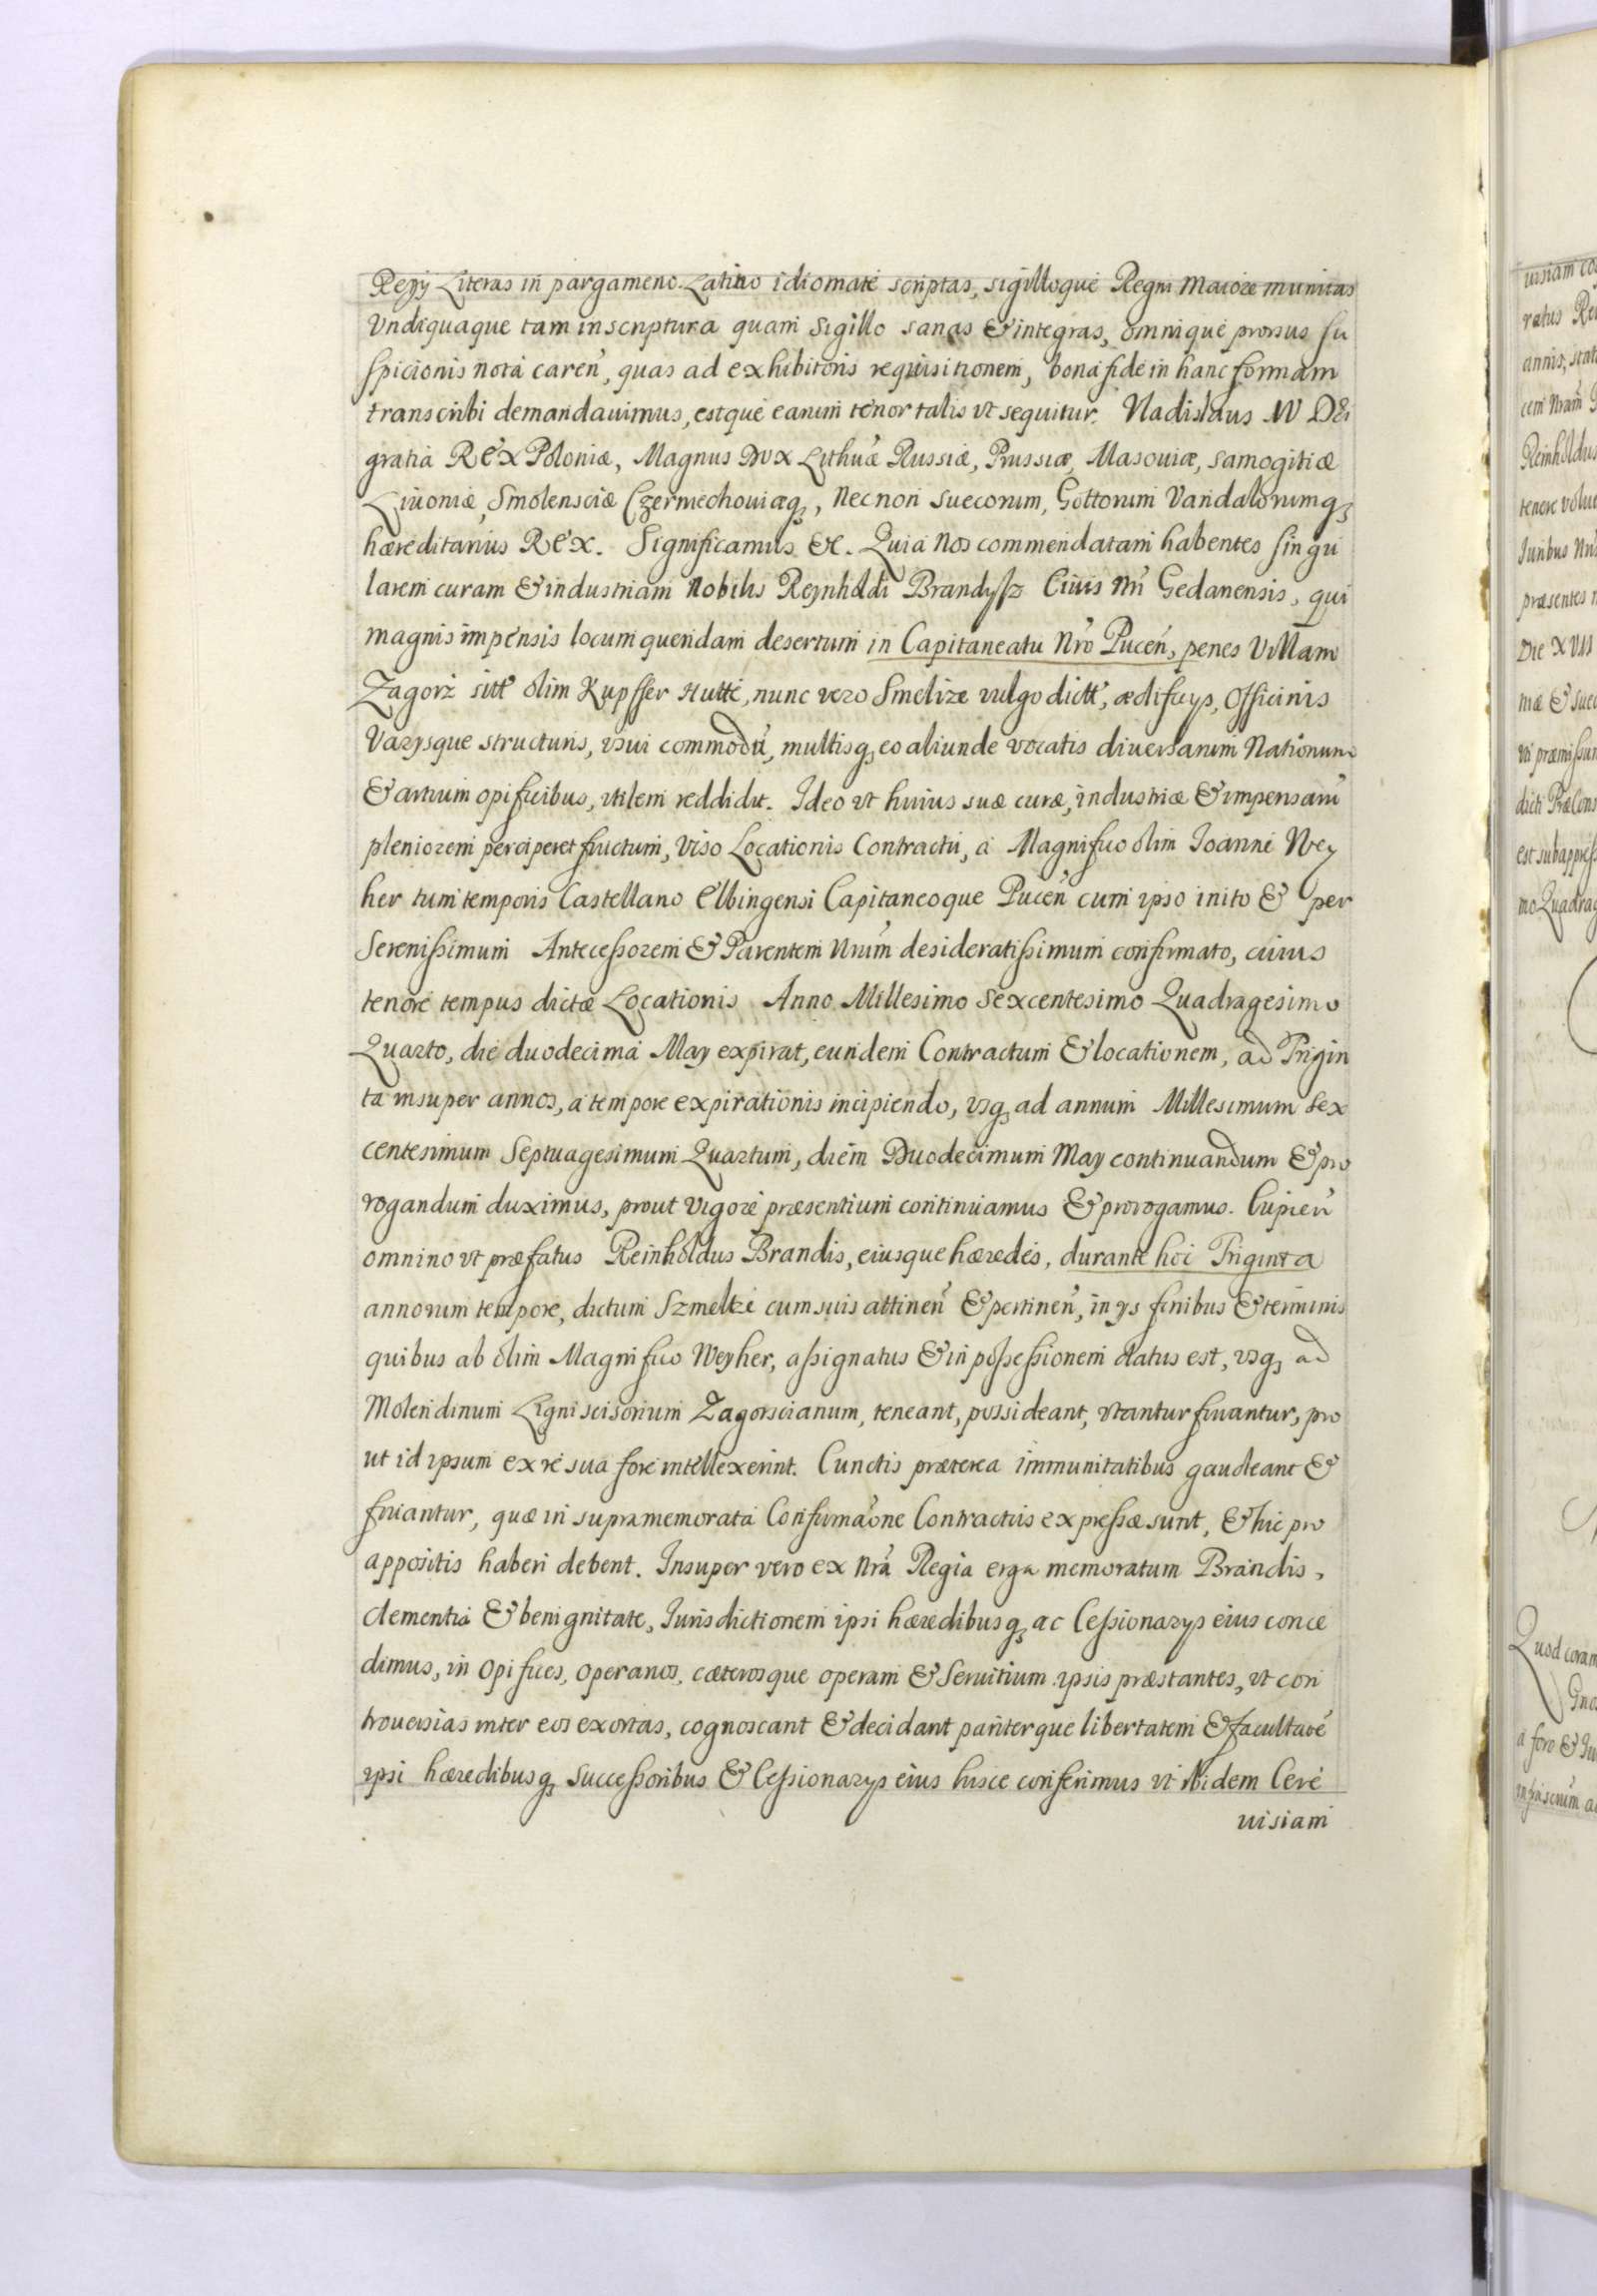 Regÿ Literas in pargameno Latino idiomate scriptas, sigilloque Regni Maiore munitas
Vndiquaque tam in scriptura quam sigillo sanas & integras, omnique prorsus su
spicionis nota caren̄, quas ad exhibitoris requisitionem, bona fide in hanc formam
transcribi demandauimus, estque earum tenor talis vt sequitur. Vladislaus IV Dei
gratia Rex Poloniæ, Magnus Dux Lithuæ Russiæ, Prussiæ, Masouiæ, Samogitiæ
Liuoniæ, Smolensciæ Czerniechouiæq, Necnon Suecorum, Gottorum Vandalorumq
hæreditarius Rex. Significamus &c. Quia Nos commendatam habentes singu
larem curam & industriam Nobilis Reÿnholdi Brandÿsz Ciuis Nr̄i Gedanensis, qui
magnis impensis locum quendam desertum in Capitaneatu Nr̄o Pucen̄, penes Villam
Zagorz sitt̄ olim Kupffer Hutte, nunc vero Smelize vulgo dictt̄, ædificÿs, Officinis
Varÿsque structuris, vsui commodū, multisq eo aliunde vocatis diuersarum Nationum
& artium opificibus, vtilem reddidit. Ideo vt huius suæ curæ, industriæ & impensarū
pleniorem perciperet fructum, viso Locationis Contractu, a Magnifico olim Joanne Wey
her tum temporis Castellano Elbingensi Capitaneoque Pucen̄ cum ipso inito & per
Serenissimum Antecessorem & Parentem Nr̄um desideratissimum confirmato, cuius
tenore tempus dictæ Locationis Anno Millesimo Sexcentesimo Quadragesimo
Quarto, die duodecima Maÿ expirat, eundem Contractum & locationem, ad Trigin
ta insuper annos, a tempore expirationis incipiendo, vsq ad annum Millesimum Sex
centesimum Septuagesimum Quartum, diem Duodecimum Maÿ continuandum & pro
rogandum duximus, prout vigore præsentium continuamus & prorogamus. Cupien̄
omnino vt præfatus Reinholdus Brandis, eiusque hæredes, durante hoc Triginta
annorum tempore, dictum Szmeltze cum suis attinen̄ & pertinen̄, in ÿs finibus & terminis
quibus ab olim Magnifico Weyher, assignatus & in possessionem datus est, vsq ad
Molendinum Ligni scisorium Zagorscianum, teneant, possideant, vtantur fruantur, pro
ut id ipsum ex re sua fore intellexerint. Cunctis præterea immunitatibus gaudeant &
fruantur, quæ in supramemorata Confirmāone Contractus expressæ sunt, & hic pro
appositis haberi debent. Insuper vero ex Nr̄a Regia erga memoratum Brandis,
clementia & benignitate, Jurisdictionem ipsi hæredibusq ac Cessionarÿs eius conce
dimus, in Opifices, Operarios, cæterosque operam & Seruitium ipsis præstantes, vt con
trouersias inter eos exortas, cognoscant & decidant pariterque libertatem & facultatē
ipsi hæredibusq Successoribus & Cessionarÿs eius hisce conferimus vt ibidem Cere
uisiam